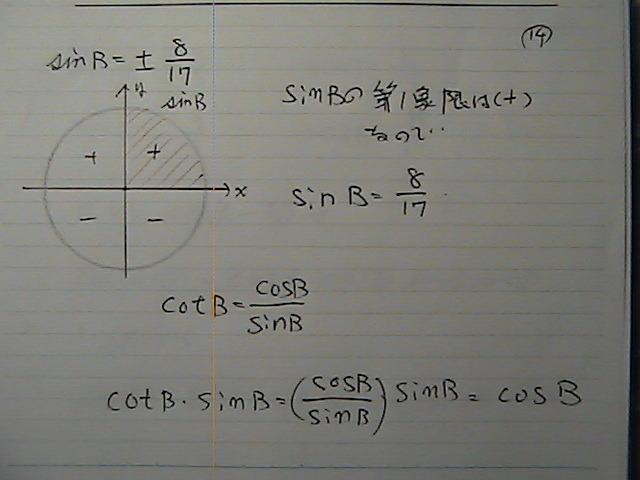 (14)
sinB = ± 8/17
y
sinB
+ +
x
− −
sinBの第1象限は(+)
なので‥
sinB = 8/17
cotB = cosB/sinB
cotB · sinB = (cosB/sinB) sinB = cosB